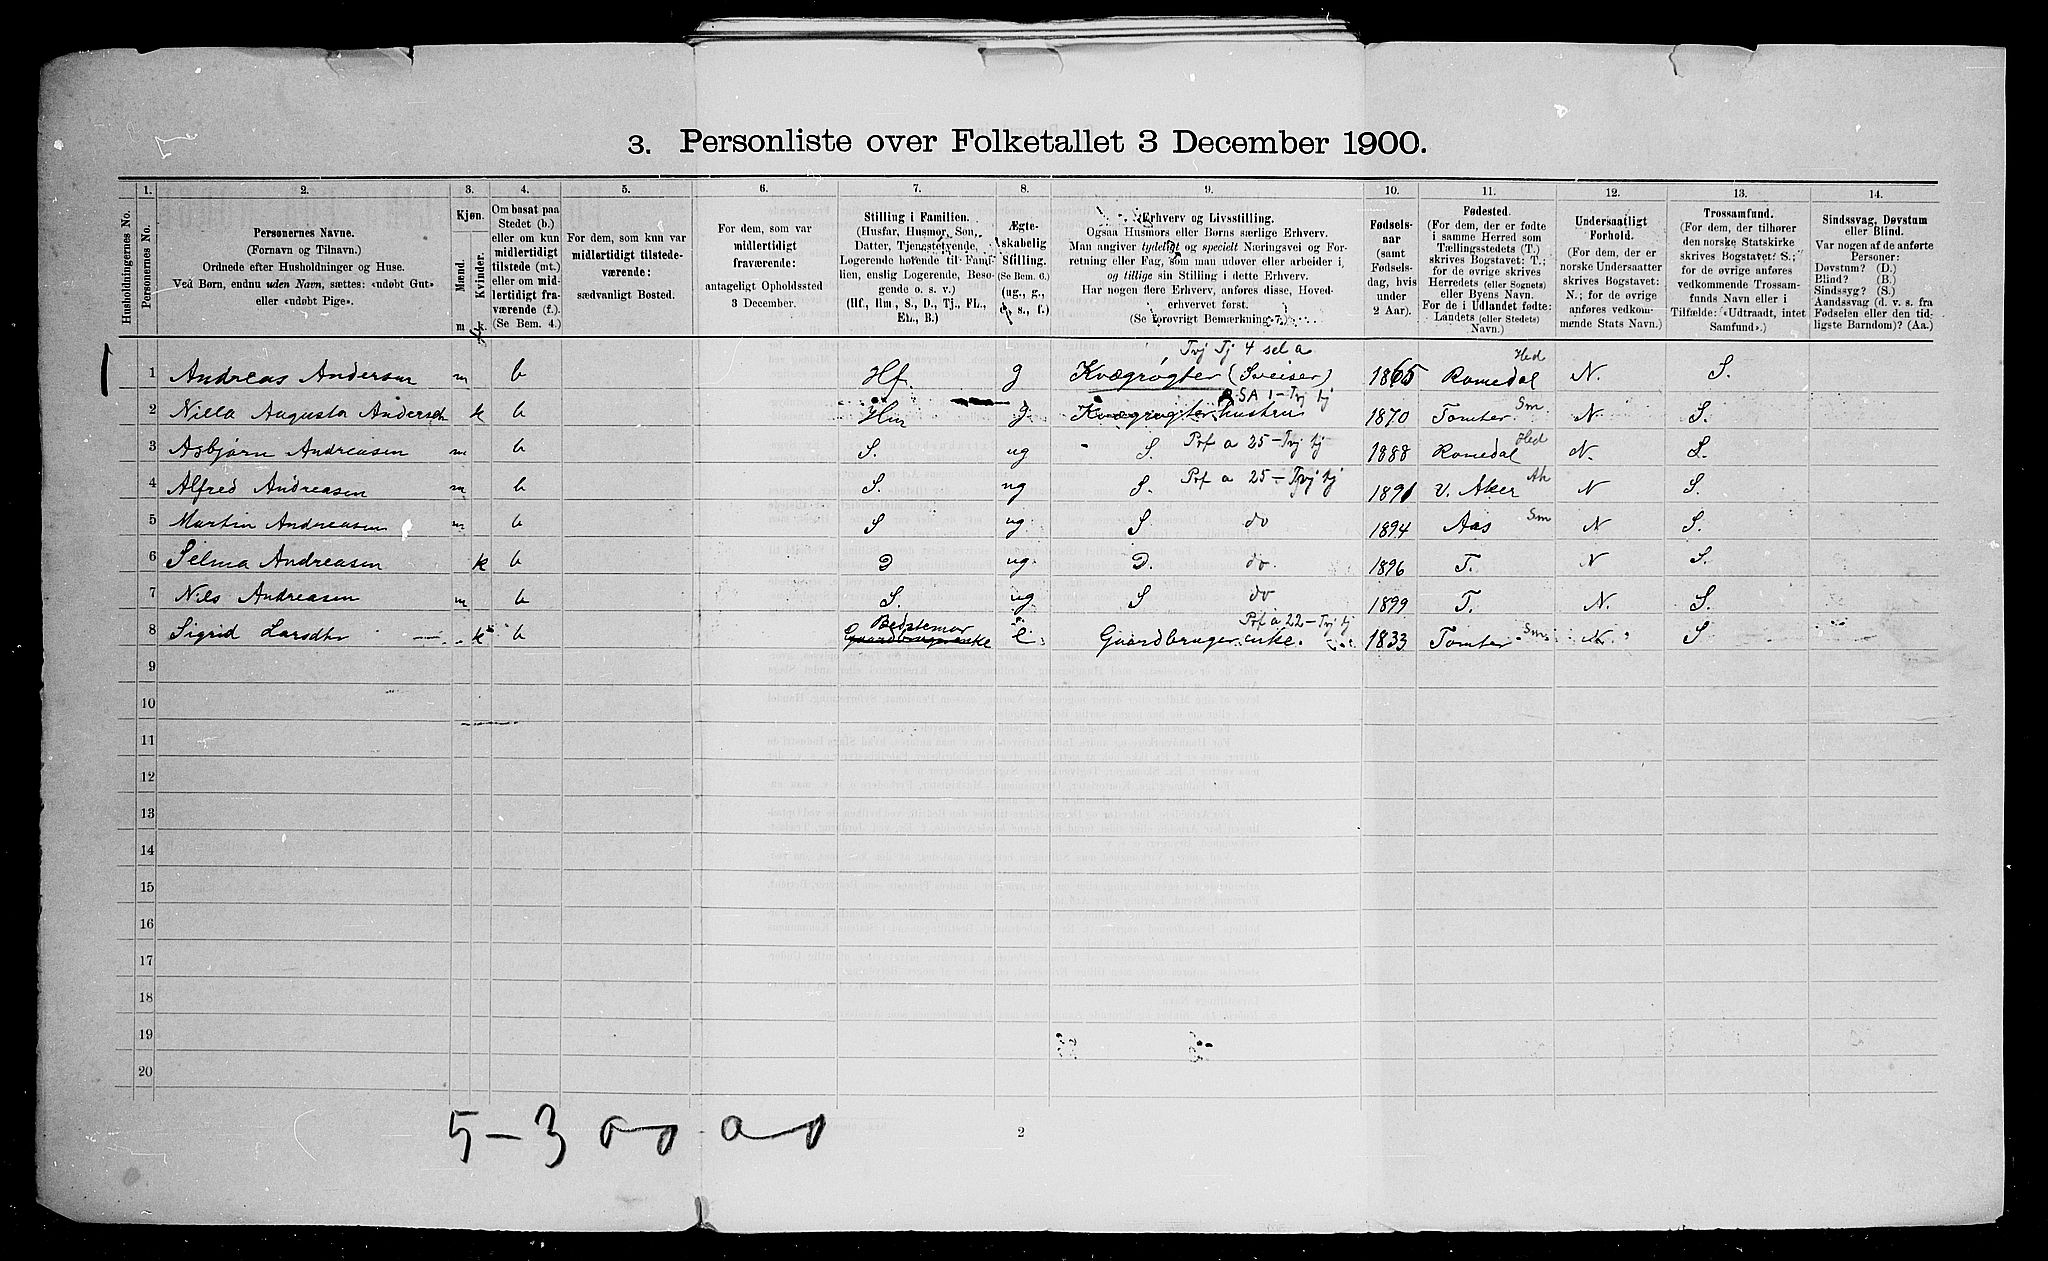 3. Personliste over Folketallet 3 December 1900.
1. 2. 3. 4. 5. 6. 7. 8. 9. 10. 11. 12. 13. 14.
Husholdningernes No.
Personernes No.
Personernes Navne.
(Fornavn og Tilnavn.)
Ordnede efter Husholdninger og Huse.
Ved Børn, endnu uden Navn, sættes: «udøbt Gut»
eller «udøbt Pige».
Kjøn.
Mænd.
Kvinder.
m. k.
Om bosat paa
Stedet (b.)
eller om kun
midlertidigt
tilstede (mt.)
eller om mid-
lertidigt fra-
værende (f.)
(Se Bem. 4.)
For dem, som kun var
midlertidigt tilstede-
værende:
sædvanligt Bosted.
For dem, som var
midlertidigt
fraværende:
antageligt Opholdssted
3 December.
Stilling i Familien.
(Husfar, Husmor, Søn,
Datter, Tjenstetyende,
Logerende hørende til Famil-
ien, enslig Logerende, Besø-
gende o. s. v.)
(Hf., Hm., S., D., Tj., FL.,
EL., B.)
Ægte-
skabelig
Stilling.
(Se Bem. 6.)
(ug., g.,
e., s., f.)
Erhverv og Livsstilling.
Ogsaa Husmors eller Børns særlige Erhverv.
Man angiver tydeligt og specielt Næringsvei og For-
retning eller Fag, som man udøver eller arbeider i,
og tillige sin Stilling i dette Erhverv.
Har nogen flere Erhverv, anføres disse, Hoved-
erhvervet først.
(Se forøvrigt Bemærkning 7.)
Fødsels-
aar
(samt
Fødsels-
dag, hvis
under
2 Aar).
Fødested.
(For dem, der er fødte
i samme Herred som
Tællingsstedets (T.)
skrives Bogstavet: T.;
for de øvrige skrives
Herredets (eller Sognets)
eller Byens Navn.
For de i Udlandet fødte:
Landets (eller Stedets)
Navn.)
Undersaatligt
Forhold.
(For dem, der er
norske Undersaatter
skrives Bogstavet:
N.; for de øvrige
anføres vedkom-
mende Stats Navn.)
Trossamfund.
(For dem, der tilhører
den norske Statskirke
skrives Bogstavet: S.;
for de øvrige anføres
vedkommende Trossam-
funds Navn eller i
Tilfælde: «Udtraadt, intet
Samfund».)
Sindssvag, Døvstum
eller Blind.
Var nogen af de anførte
Personer:
Døvstum? (D.)
Blind? (B.)
Sindssyg? (S.)
Aandssvag (d. v. s. fra
Fødselen eller den tid-
ligste Barndom)? (Aa.)
Tvj Tj 4 sel a
1 Andreas Andersen m b Hf. g Kvægrøgter (Sveiser) 1865 Romedal Hed N. S.
SA 1 - Tvj tj
2 Augusta Andersen k b Hm g Kvægrøgterhustru 1870 Tomter Sm. N S.
3 Asbjørn Andreasen m b S. ug S. Prf a 25 - Tvj tj 1888 Romedal Hed N. S.
4 Alfred Andreasen m b S. ug S. Prf a 25 - Tvj tj 1891 V. Aker Ak N S.
5 Martin Andreasen m b S ug S do 1894 Aas Sm N S.
6 Selma Andreasen k b D ug D. do. 1896 T. N S.
7 Nils Andreasen m b S. ug S do 1899 T. N. S.
Bedstemor Prf a 22 - Tvj tj
8 Sigrid Larsdtr k b Gaardbrugerenke e Gaardbrugerenke. 1833 Tomter Sm. N. S
9
10
11
12
13
14
15
16
17
18
19
20
5-3
2